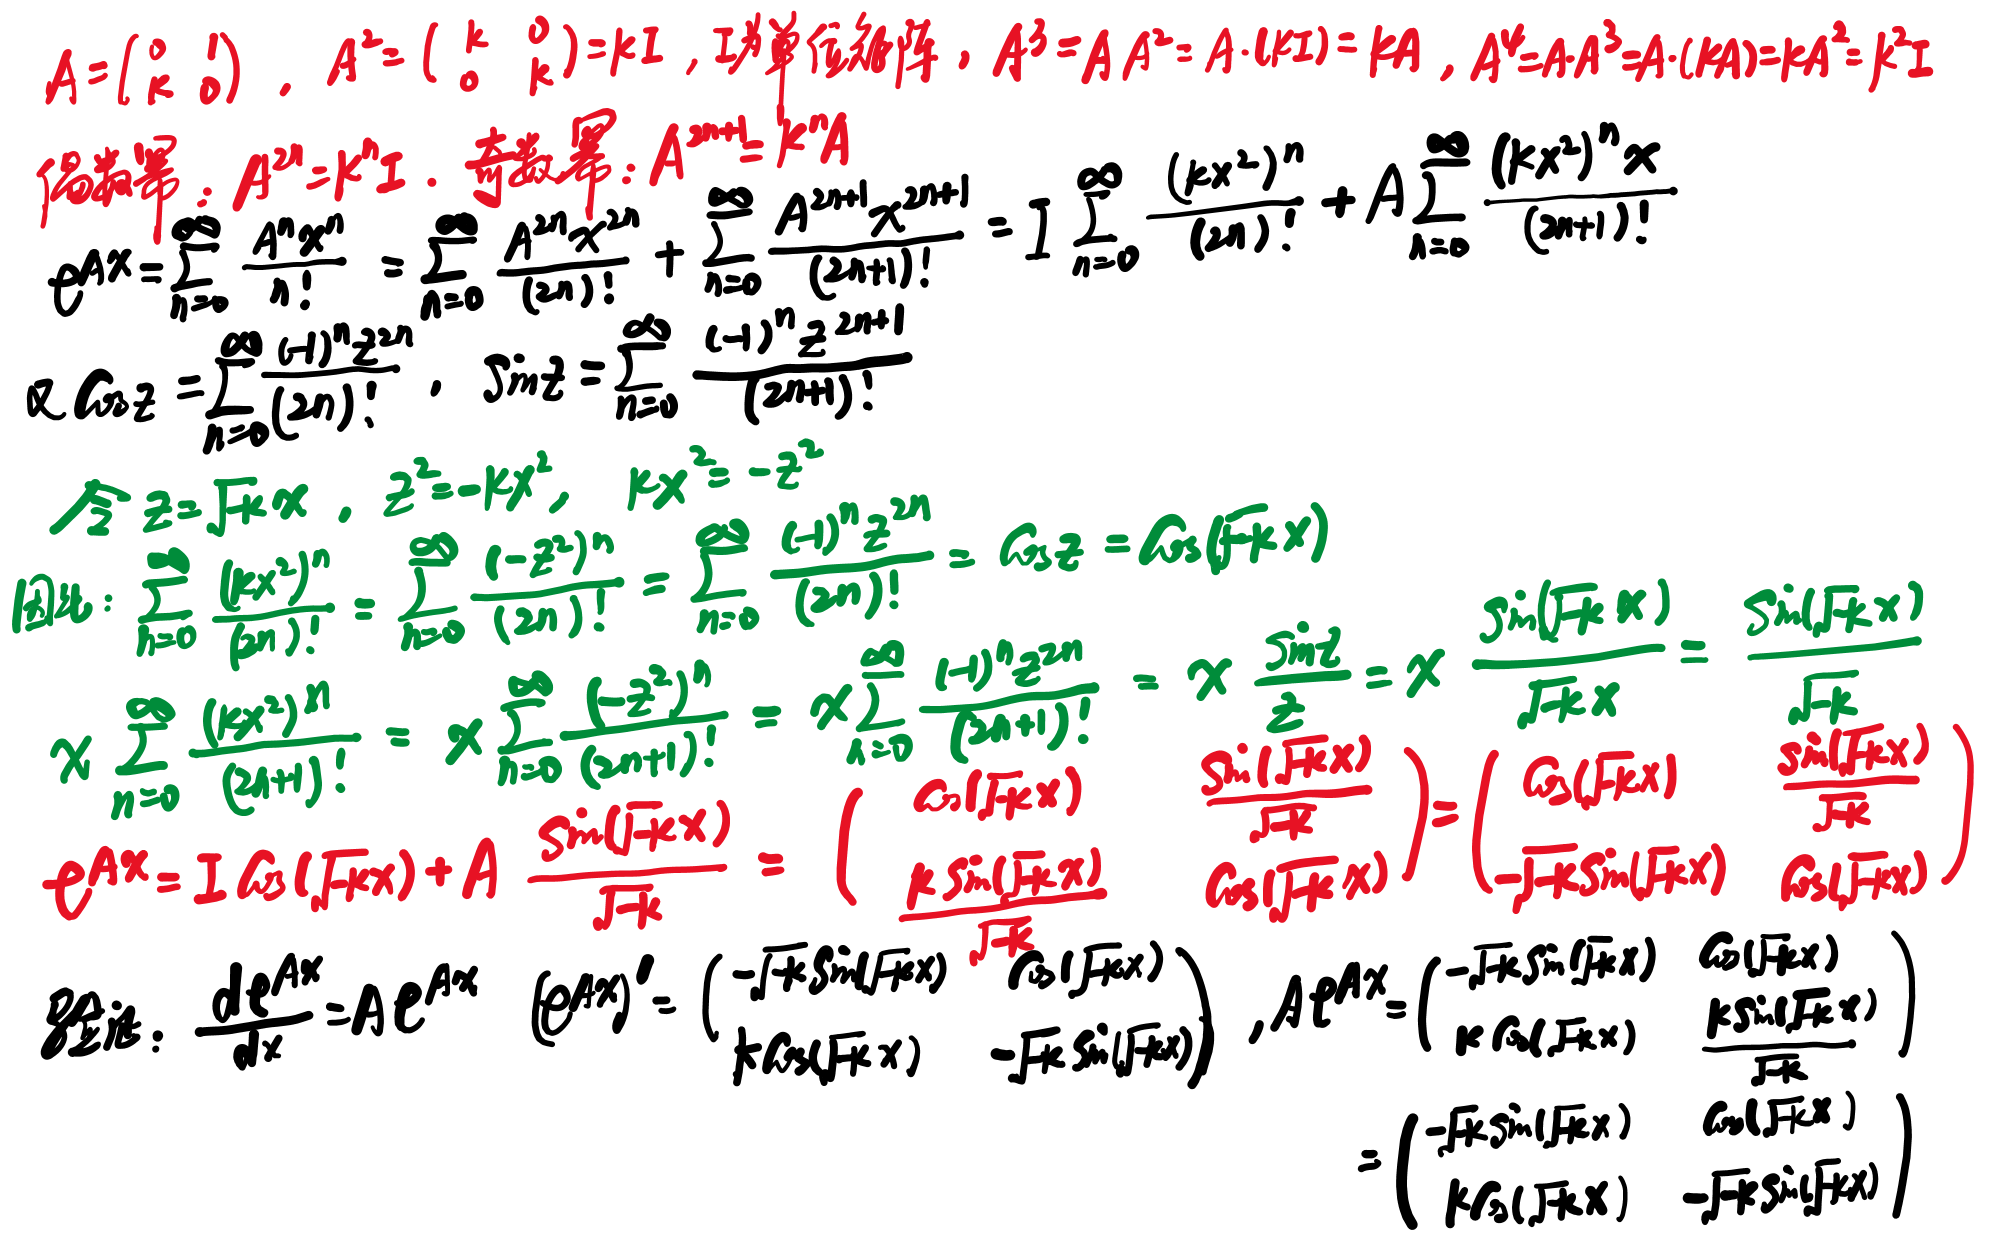 A = (0 1; k 0), A² = (k 0; 0 k) = kI, I为单位矩阵, A³ = A A² = A·(kI) = kA, A⁴ = A·A³ = A·(kA) = kA² = k²I
偶数幂: A²ⁿ = kⁿI. 奇数幂: A²ⁿ⁺¹ = kⁿA
e^{Ax} = ∑_{n=0}^{∞} Aⁿxⁿ/n! = ∑_{n=0}^{∞} A²ⁿx²ⁿ/(2n)! + ∑_{n=0}^{∞} A²ⁿ⁺¹x²ⁿ⁺¹/(2n+1)! = I ∑_{n=0}^{∞} (kx²)ⁿ/(2n)! + A ∑_{n=0}^{∞} (kx²)ⁿx/(2n+1)!
又 Cos z = ∑_{n=0}^{∞} (-1)ⁿz²ⁿ/(2n)!, Sin z = ∑_{n=0}^{∞} (-1)ⁿz²ⁿ⁺¹/(2n+1)!
令 z = √-k x, z² = -kx², kx² = -z²
因此: ∑_{n=0}^{∞} (kx²)ⁿ/(2n)! = ∑_{n=0}^{∞} (-z²)ⁿ/(2n)! = ∑_{n=0}^{∞} (-1)ⁿz²ⁿ/(2n)! = Cos z = Cos(√-k x)
x ∑_{n=0}^{∞} (kx²)ⁿ/(2n+1)! = x ∑_{n=0}^{∞} (-z²)ⁿ/(2n+1)! = x ∑_{n=0}^{∞} (-1)ⁿz²ⁿ/(2n+1)! = x Sin z/z = x Sin(√-k x)/(√-k x) = Sin(√-k x)/√-k
e^{Ax} = I Cos(√-k x) + A Sin(√-k x)/√-k = (Cos(√-k x) Sin(√-k x)/√-k; k Sin(√-k x)/√-k Cos(√-k x)) = (Cos(√-k x) Sin(√-k x)/√-k; -√-k Sin(√-k x) Cos(√-k x))
验证: de^{Ax}/dx = Ae^{Ax} (e^{Ax})' = (-√-k Sin(√-k x) Cos(√-k x); k Cos(√-k x) -√-k Sin(√-k x)), Ae^{Ax} = (-√-k Sin(√-k x) Cos(√-k x); k Cos(√-k x) k Sin(√-k x)/√-k)
= (-√-k Sin(√-k x) Cos(√-k x); k Cos(√-k x) -√-k Sin(√-k x))